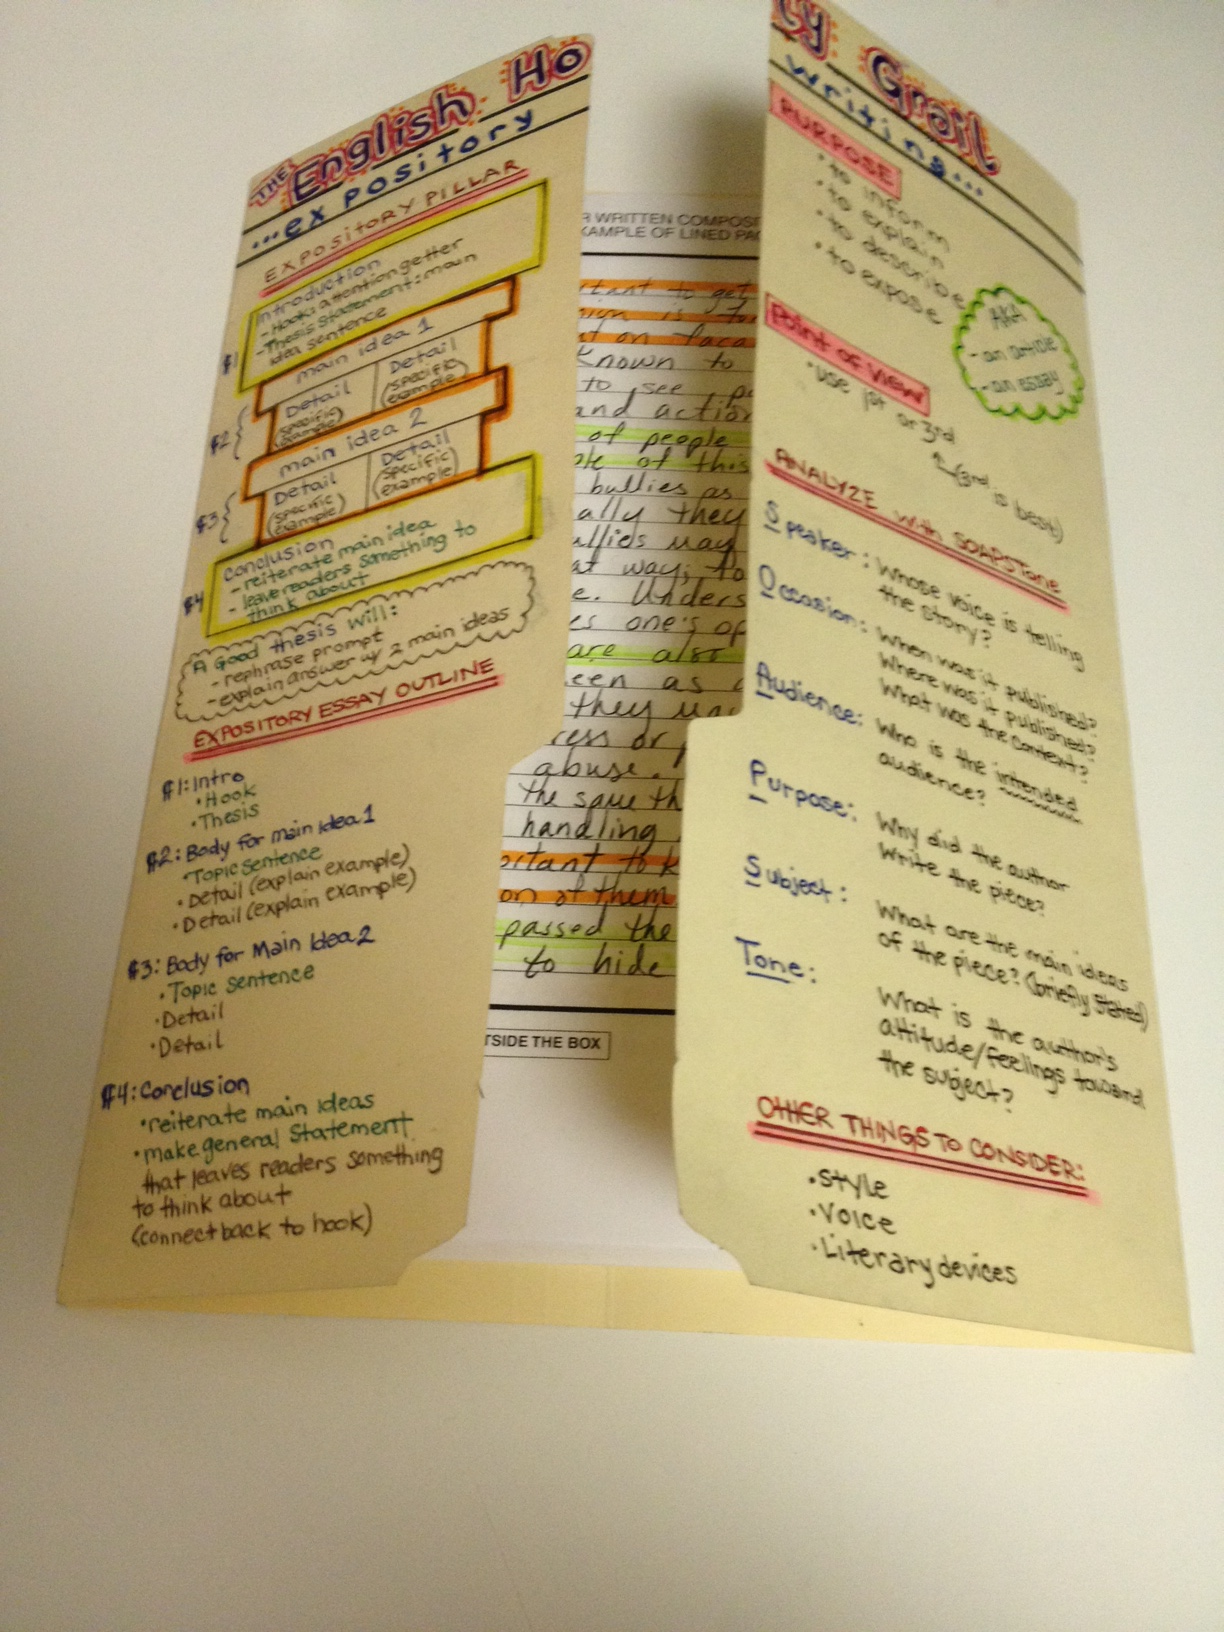 THE English Ho
...expository
EXPOSITORY PILLAR
Introduction
- Hook: attention getter
- Thesis Statement: main
idea sentence
¶1
main idea 1
Detail
(specific
example)
Detail
(specific
example)
¶2
main idea 2
Detail
(specific
example)
Detail
(specific
example)
¶3
Conclusion
- reiterate main idea
- leave readers something to
think about
¶4
A Good thesis will:
- rephrase prompt
- explain answer w/ 2 main ideas
EXPOSITORY ESSAY OUTLINE
¶1: Intro
• Hook
• Thesis
¶2: Body for main idea 1
• Topic sentence
• Detail (explain example)
• Detail (explain example)
¶3: Body for Main Idea 2
• Topic sentence
• Detail
• Detail
¶4: Conclusion
• reiterate main ideas
• make general statement
that leaves readers something
to think about
(connect back to hook)
R WRITTEN COMPOSI
XAMPLE OF LINED PAG
rtant to get
sign is
on
known to
to see
and action
of people
ple of this
bullies as
ally they
ullies may
at way; to
e. Unders
es one's op
are also
een as
they
ress or
abuse.
the same th
handling
ortant to k
on of them
passed the
to hide
TSIDE THE BOX
cy Grail
writing...
PURPOSE
• to inform
• to explain
• to describe
• to expose
AKA
- an article
- an essay
Point of View
• use 1st or 3rd
(3rd is best)
ANALYZE with SOAPSTone
Speaker: Whose voice is telling
the story?
Occasion: When was it published?
Where was it published?
What was the context?
Audience: Who is the intended
audience?
Purpose: Why did the author
write the piece?
Subject: What are the main ideas
of the piece? (briefly stated)
Tone: What is the author's
attitude/feelings toward
the subject?
OTHER THINGS TO CONSIDER:
• Style
• Voice
• Literary devices